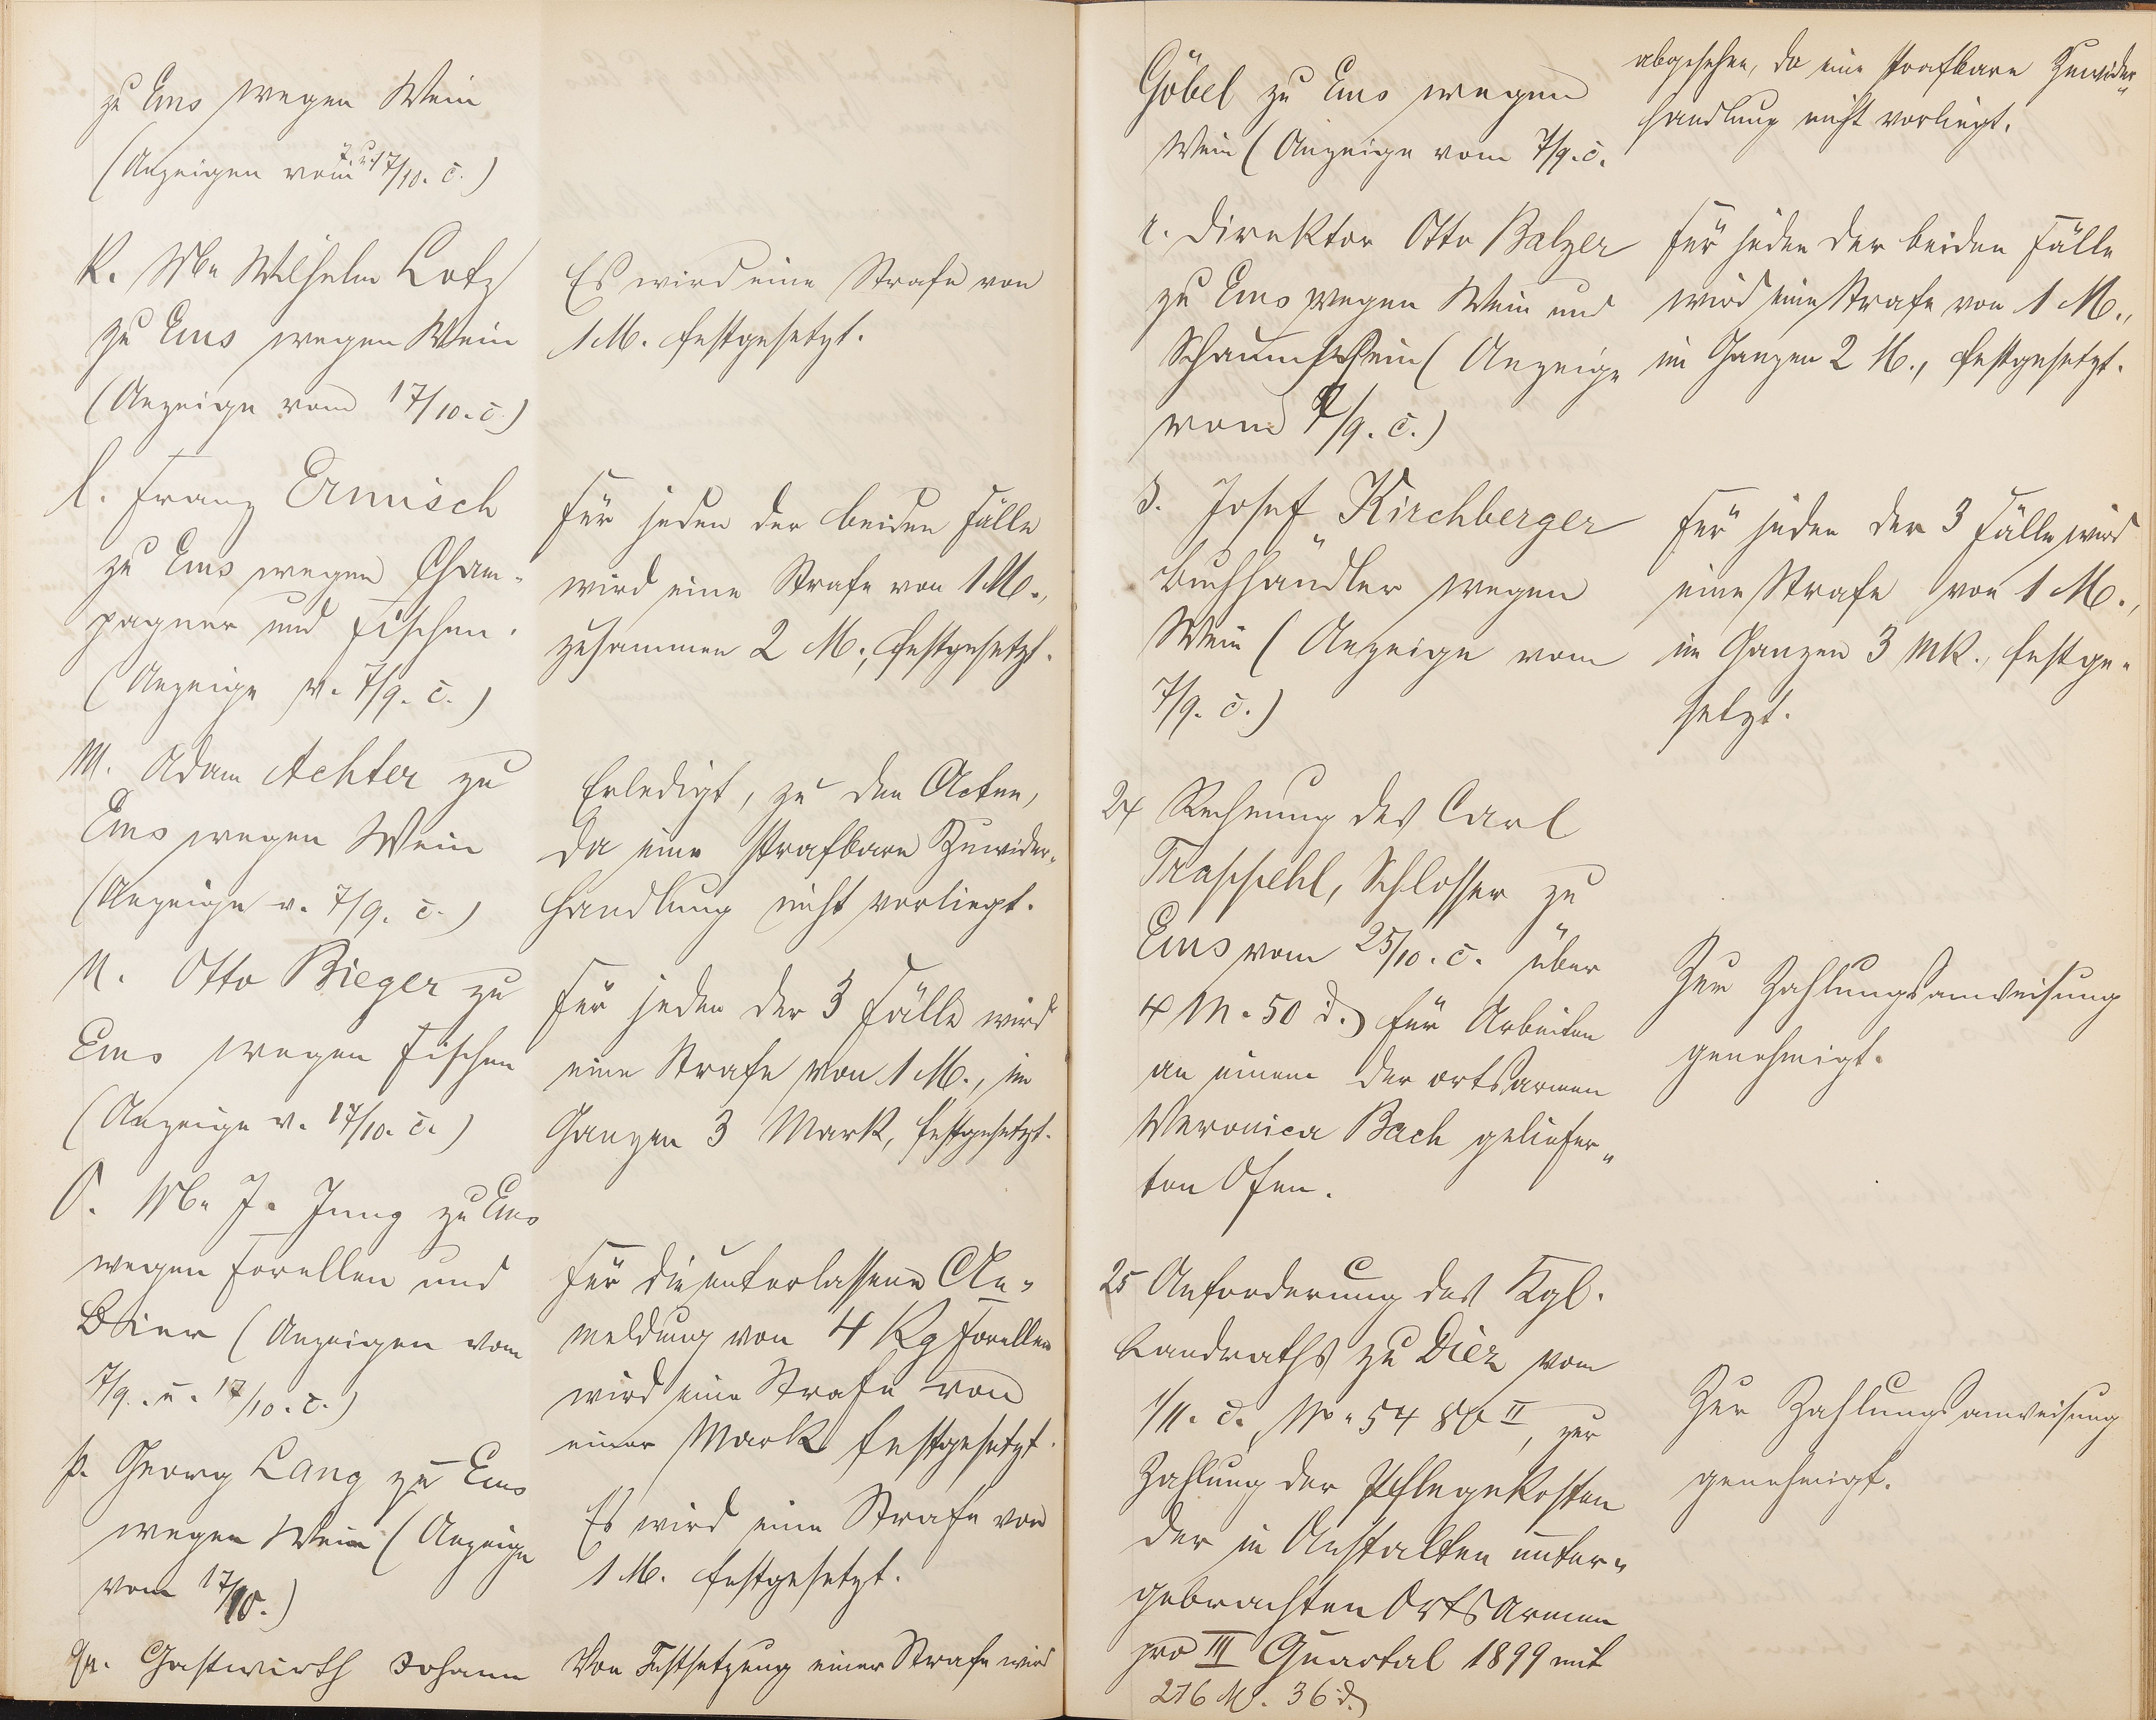 zu Ems wegen Wein
(Anzeigen vom 7 u. 17/10. c.)
k. Ww. Wilhelm Lotz
zu Ems wegen Wein
(Anzeige vom 17/10. c.)
Es wird eine Strafe von
1 M. festgesetzt.
l. Franz Ermisch
zu Ems wegen Cham-
pagner und Fischen.
(Anzeige v. 7/9. c.)
Für jeden der beiden Fälle
wird eine Strafe von 1 M.,
zusammen 2 M., festgesetzt.
m. Adam Achter zu
Ems wegen Wein
(Anzeige v. 7/9. c.)
Erledigt, zu den Acten,
da eine strafbare Zuwider-
handlung nicht vorliegt.
n. Otto Bieger zu
Ems wegen Fischen
(Anzeige v. 17/10. c.)
Für jeden der 3 Fälle wird
eine Strafe von 1 M., im
Ganzen 3 Mark, festgesetzt.
o. Ww. J. Jung zu Ems
wegen Forellen und
Bier (Anzeigen vom
7/9. u. 17/10. c.)
Für die unterlassene An-
meldung von 4 Kg Forellen
wird eine Strafe von
einer Mark festgesetzt.
p. Georg Lang zu Ems
wegen Wein (Anzeige
vom 17/10.)
Es wird eine Strafe von
1 M. festgesetzt.
q. Gastwirth Johann
Von Festsetzung einer Strafe wird
Göbel zu Ems wegen
Wein (Anzeige vom 7/9. c.
abgesehen, da eine strafbare Zuwider-
handlung nicht vorliegt.
r. Direktor Otto Balzer
zu Ems wegen Wein und
Schaumwein (Anzeige
vom 7/9. c.)
Für jeden der beiden Fälle
wird eine Strafe von 1 M.,
im Ganzen 2 M., festgesetzt.
s. Josef Kirchberger
Buchhändler wegen
Wein (Anzeige vom
7/9. c.)
Für jeden der 3 Fälle wird
eine Strafe von 1 M.,
im Ganzen 3 Mk., festge-
setzt.
24 Rechnung des Carl
Trappehl, Schlosser zu
Ems vom 25/10. c. über
4 M. 50 d. für Arbeiten
an einem der ortsarmen
Veronica Bach geliefer-
ten Ofen.
Zur Zahlungsanweisung
genehmigt.
25 Anforderung des Kgl.
Landraths zu Diez vom
1/11. c. No. 5480 II, zur
Zahlung der Pflegekosten
der in Anstalten unter-
gebrachten Ortsarmen
pro III Quartal 1899 mit
216 M. 36 d.
Zur Zahlungsanweisung
genehmigt.